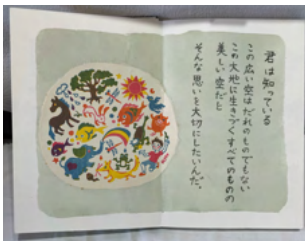 君は知っている
この広い空はだれのものでもない
この大地に生きづくすべてのものの
美しい空だと
そんな思いを大切にしたいんだ。